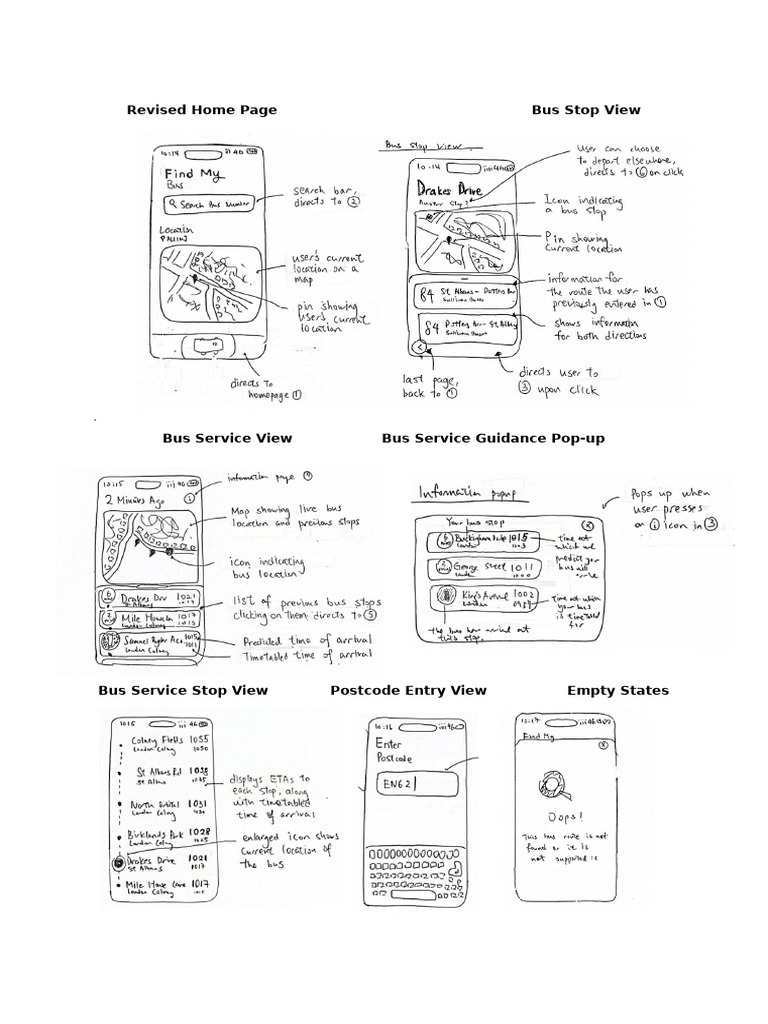 Revised Home Page
Bus Stop View
10:14 4G
Find My
Bus
Search Bus Number
Location
search bar,
directs to ②
user's current
location on a
map
pin showing
user's current
location
directs to
homepage ①
Bus Stop View.
10:14 4G
Drakes Drive
Another Stop?
84 St Albans - Potters Bar
Sullivan Buses
84 Potters Bar - St Albans
Sullivan Buses
User can choose
to depart elsewhere,
directs to ⑥ on click
Icon indicating
a bus stop
Pin showing
current location
information for
the route the user has
previously entered in ①
shows information
for both directions
last page,
back to ①
directs user to
③ upon click
Bus Service View
Bus Service Guidance Pop-up
10:15 4G
2 Minutes Ago
6 min Drakes Drv 1021
St Albans 1017
2 min Mile House Ln 1017
London Colney 1015
1015
London Colney 1011
information page ④
Map showing live bus
location and previous stops
icon indicating
bus location
list of previous bus stops
clicking on them, directs to ⑤
Predicted time of arrival
Timetabled time of arrival
Information popup
Your bus stop
6 min Buckingham Palace 1015
London 1013
2 mins George Street 1011
London
King's Avenue 1002
London 0959
time at
which we
predict your
bus will
arrive
Time at which
your bus
is timetabled
for
The bus has arrived at
this stop.
Pops up when
user presses
on ⓘ icon in ③
Bus Service Stop View
Postcode Entry View
Empty States
1015 4G
Colney Fields 1055
London Colney 1050
St Albans Rd 1038
St Albans 1035
North Orbital 1031
London Colney
Birklands Park 1028
London Colney 1025
Drakes Drive 1021
St Albans 1017
Mile House Lane 1017
London Colney
displays ETAs to
each stop, along
with timetabled
time of arrival
enlarged icon shows
current location of
the bus
10:16 4G
Enter
Postcode
EN62
10:17 4G
Find My
Oops!
This bus route is not
found or it is
not supported